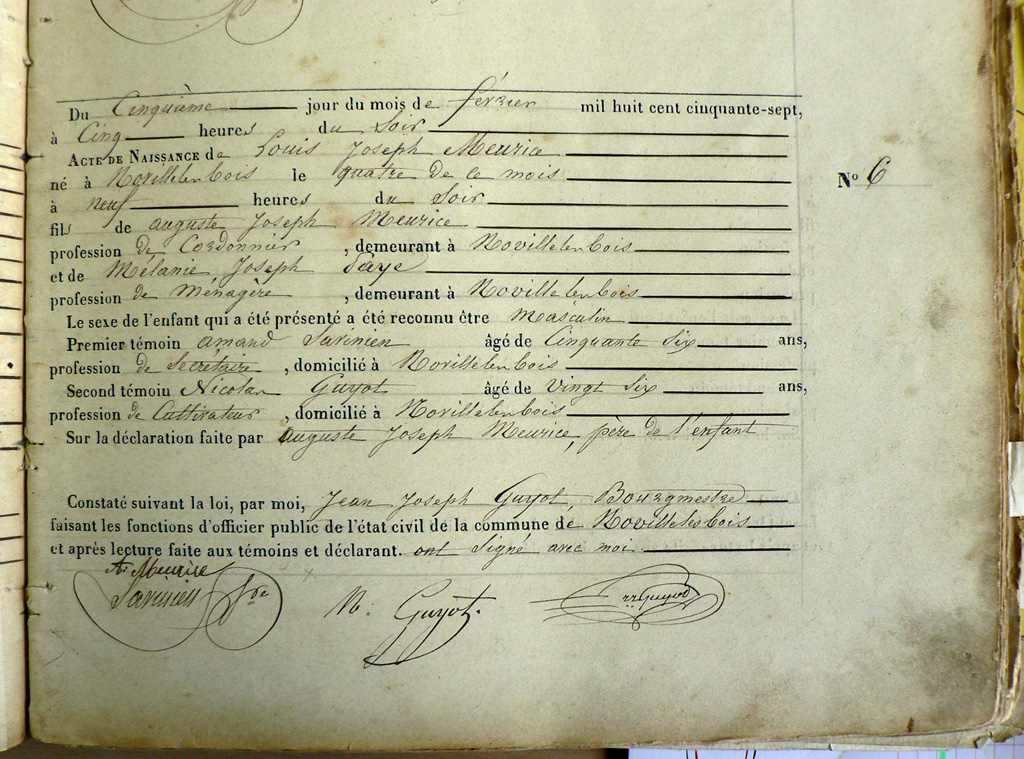 Du Cinquième jour du mois de février mil huit cent cinquante-sept,
à Cinq heures du Soir
ACTE DE NAISSANCE de Louis Joseph Meurice
né à Novillelenbois le quatre de ce mois
N° 6
à neuf heures du Soir
fils de auguste Joseph Meurice
profession de Cordonnier, demeurant à Novillelenbois
et de Mélanie Joseph Faye
profession de Ménagère, demeurant à Novillelenbois
Le sexe de l'enfant qui a été présenté a été reconnu être Masculin
Premier témoin amand Savinien âgé de Cinquante Six ans,
profession de Secrétaire, domicilié à Novillelenbois
Second témoin Nicolas Guyot âgé de Vingt Six ans,
profession de Cultivateur, domicilié à Novillelenbois
Sur la déclaration faite par auguste Joseph Meurice, père de l'enfant
Constaté suivant la loi, par moi, Jean Joseph Guyot, Bourgmestre
faisant les fonctions d'officier public de l'état civil de la commune de Novillelesbois
et après lecture faite aux témoins et déclarant. ont signé avec moi.
A. Meurice
Savinien Sre
N. Guyot.
Guyot